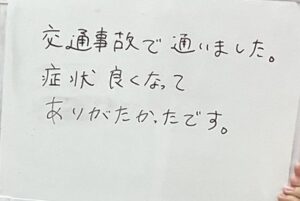 交通事故で通いました。
症状良くなって
ありがたかったです。